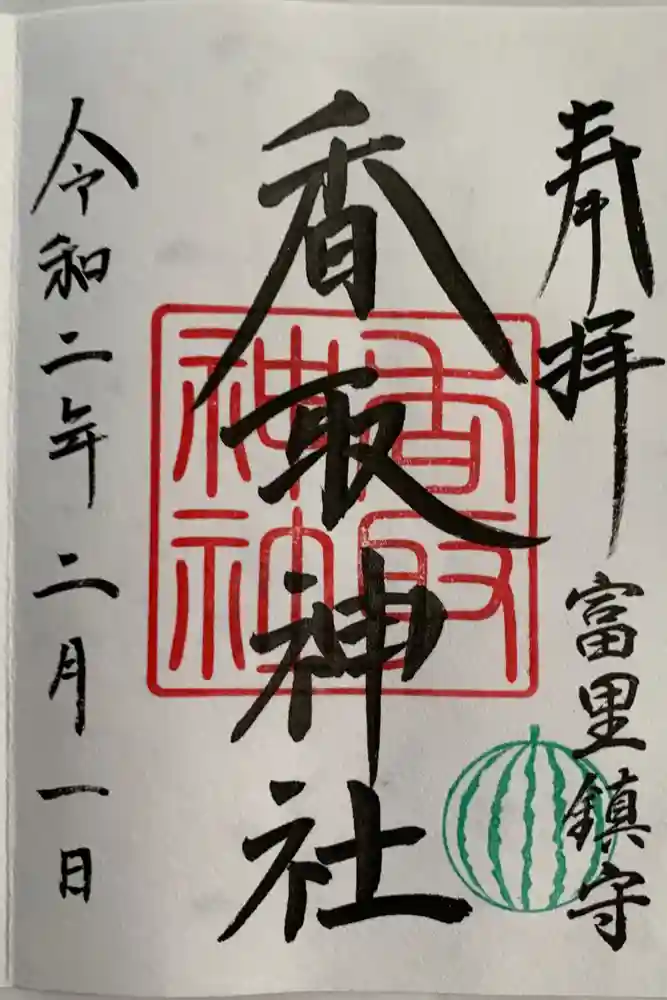 奉拝
富里鎮守
香取神社
香取
神社
令和二年二月一日